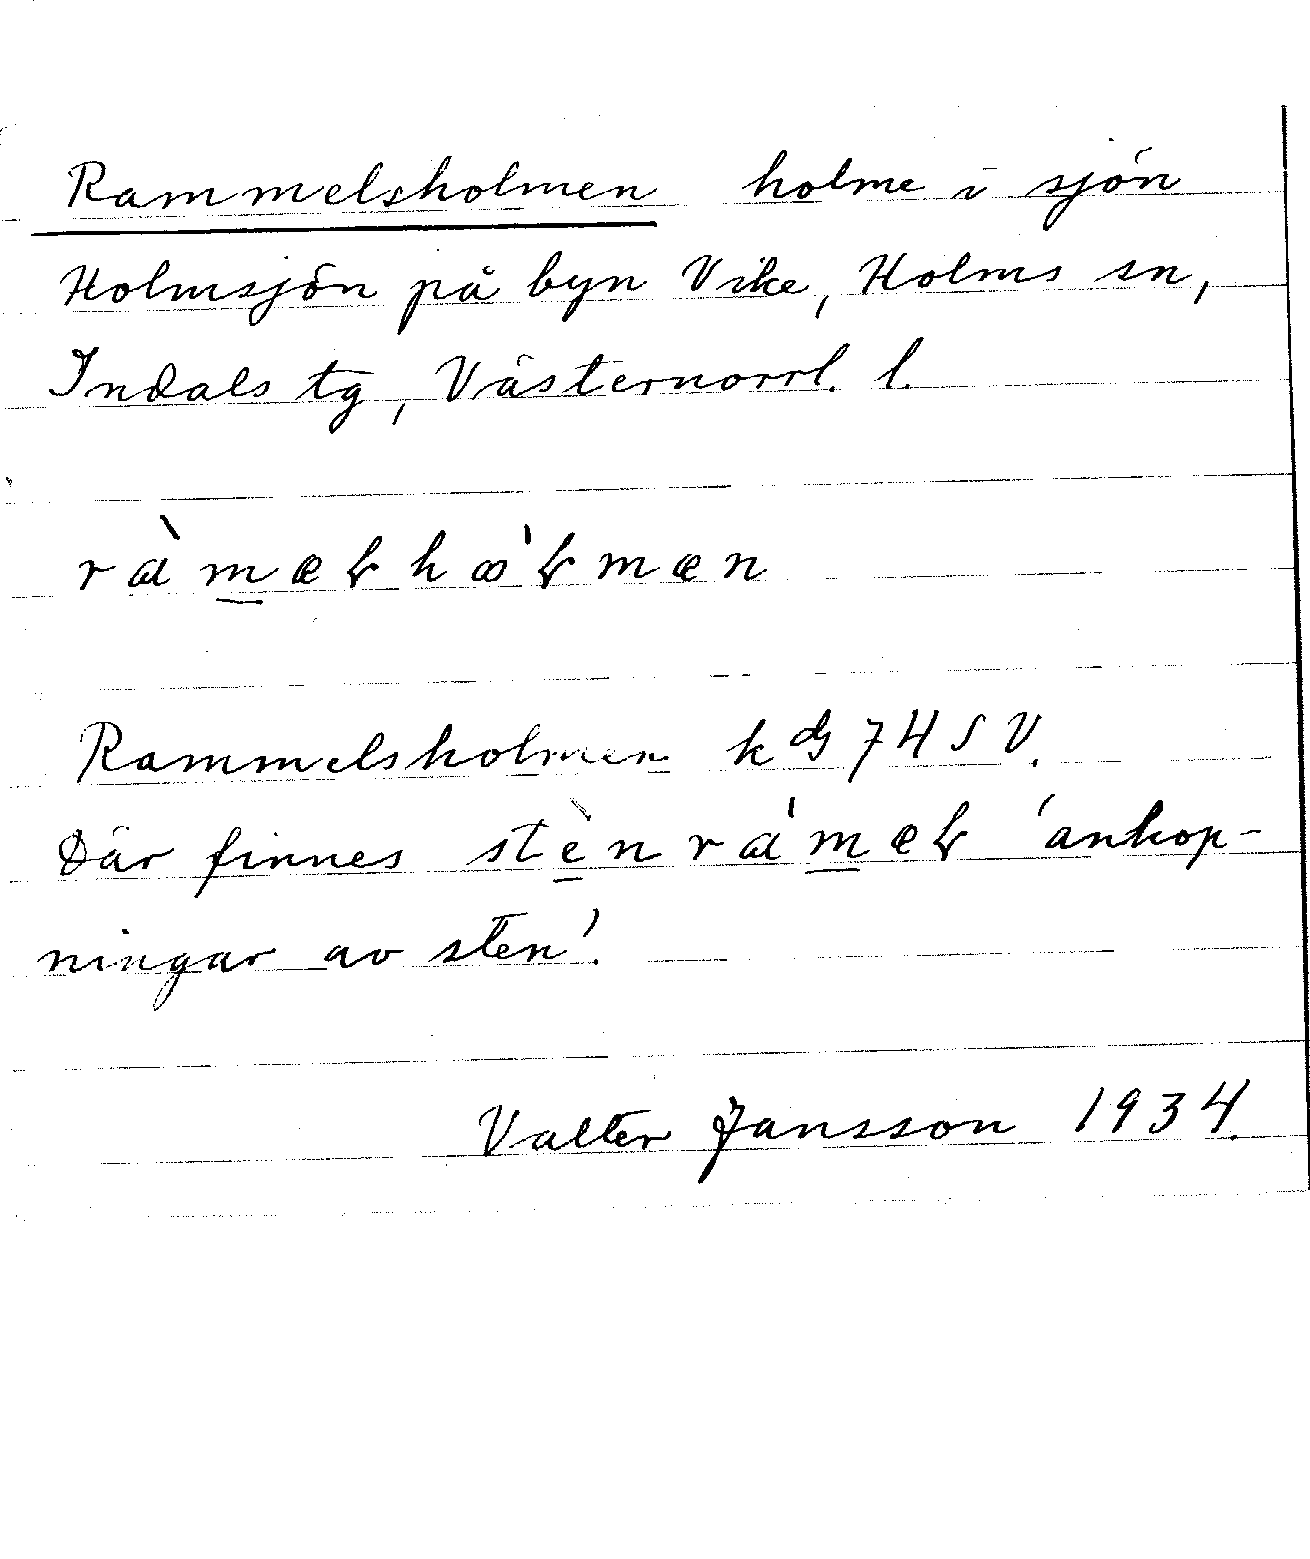 Rammelsholmen holme i sjön
Holmsjön på byn Vike, Holms sn,
Indals tg, Västernorrl. l.
ràmæɽhꝏ'ɽmæn
Rammelsholmen k dg 74 SV.
Där finnes stènrá'mæɽ 'anhop-
ningar av sten'.
Valter Jansson 1934.